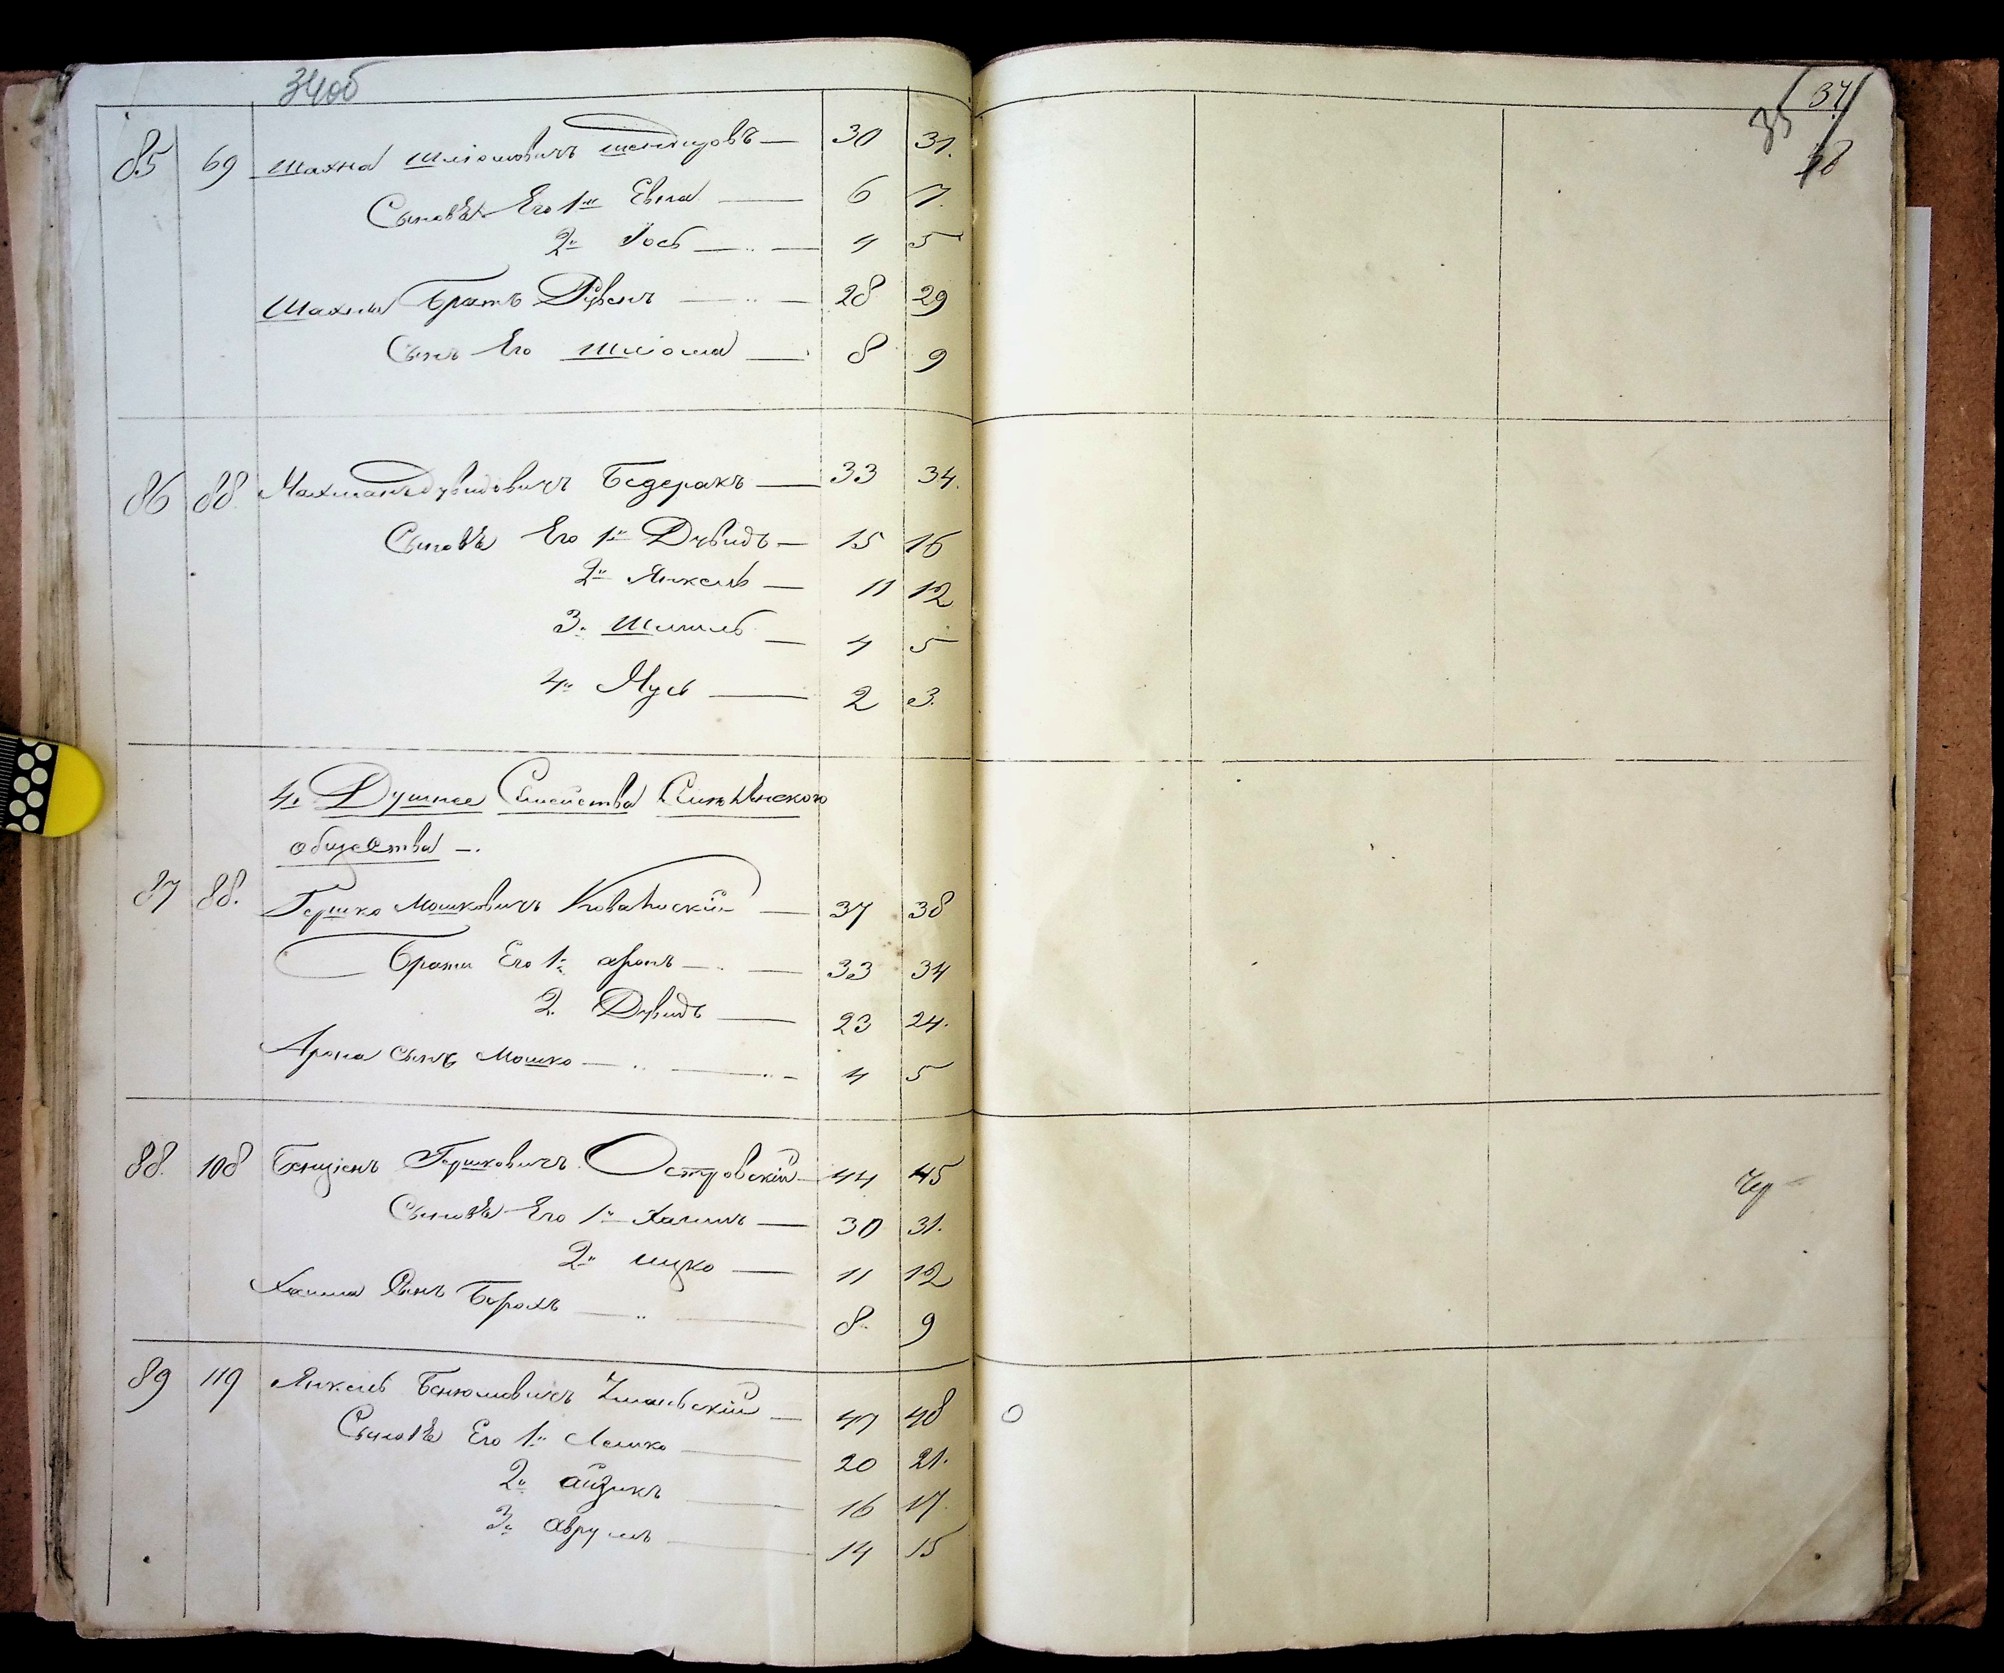 34об
85 69 Шахна Шліомовичъ — 30 31.
Сыновья Его 1й Евна — 6 7.
2й Іось — 4 5
Шахны Братъ Рувенъ — 28 29
Сынъ Его Шліома — 8 9
86 88 Нахманъ Дувидовичъ Бедеракъ — 33 34.
Сыновья Его 1й Дувидъ — 15 16
2й Янкель — 11 12
3. Шмиль — 4 5
4й Мусь — 2 3.
4х Душное Семейства
общества —.
87 88. Гершко Мошковичъ — 37 38
Братья Его 1й аронъ — 33 34
2. Дувидъ — 23 24.
Арона сынъ Мошко — 4 5
88. 108 Бенціонъ Гершковичъ Островскій — 44 45
Сыновья Его 1й Хаимъ — 30 31.
2й ицко — 11 12
Хаима Сынъ Борохъ — 8. 9
89 119 Янкель Бенюмовичъ Уманьскій — 47 48
Сыновья Его 1й Лейко — 20 21.
2й айзикъ 16 17.
3й аврумъ 14 15
37
35
38